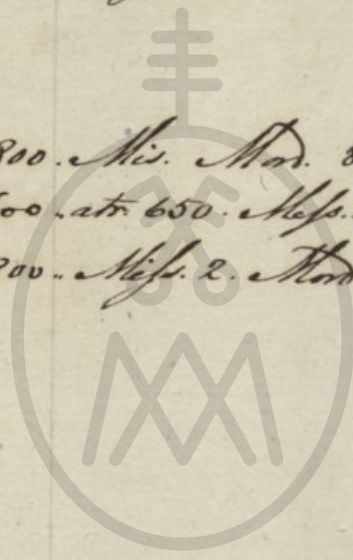 800. Mis. Mord. 8
600 .. atr. 650. Mess.
200 .. Miss. 2. Mord